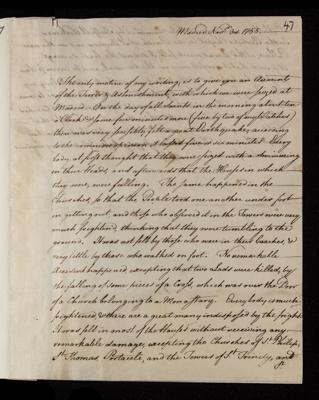 47
Madrid Novr. 3d. 1755.
The only motive of my writing, is to give you an Account
of the Terror & Astonishment, with which we were seized at
Madrid. On the day of all Saints in the morning about ten
o'Clock & some few minutes more (five by two of my Watches)
there was very sensibly felt a great Earthquake, according
to the common opinion it lasted five or six minutes. Every
body at first thought that they were seized with a swimming
in their Heads, and afterwards that the Houses in which
they were, were falling. The same happened in the
Churches, so that the People trod one another under foot
in getting out, and those who observed it in the Towers were very
much frightened, thinking that they were tumbling to the
ground. It was not felt by those who were in their Coaches, &
very little by those who walked on foot. No remarkable
Accident happened excepting that two Lads were killed, by
the falling of some pieces of a Cross, which was over the Door
of a Church belonging to a Monastery. Every body is much
frightened, & there are a great many indisposed by the fright.
It was felt in most of the Houses without receiving any
remarkable damage, excepting the Churches of St. Philip,
St. Thomas, Portaceli, and the Towers of St. Trinity, and